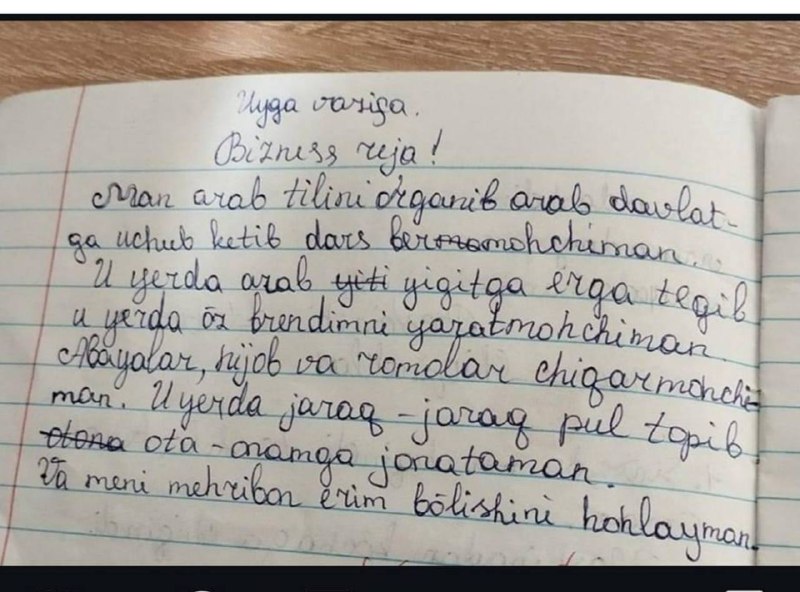 Uyga vazifa.
Bizness reja!
Man arab tilini o'rganib arab davlat-
ga uchub ketib dars bermohchiman.
U yerda arab yiti yigitga erga tegib
u yerda ōz brendimni yaratmohchiman.
Abayalar, hijob va romolar chiqarmohchi-
man. U yerda jaraq-jaraq pul topib
ota-onamga jonataman.
Va meni mehribon erim bōlishini hohlayman.